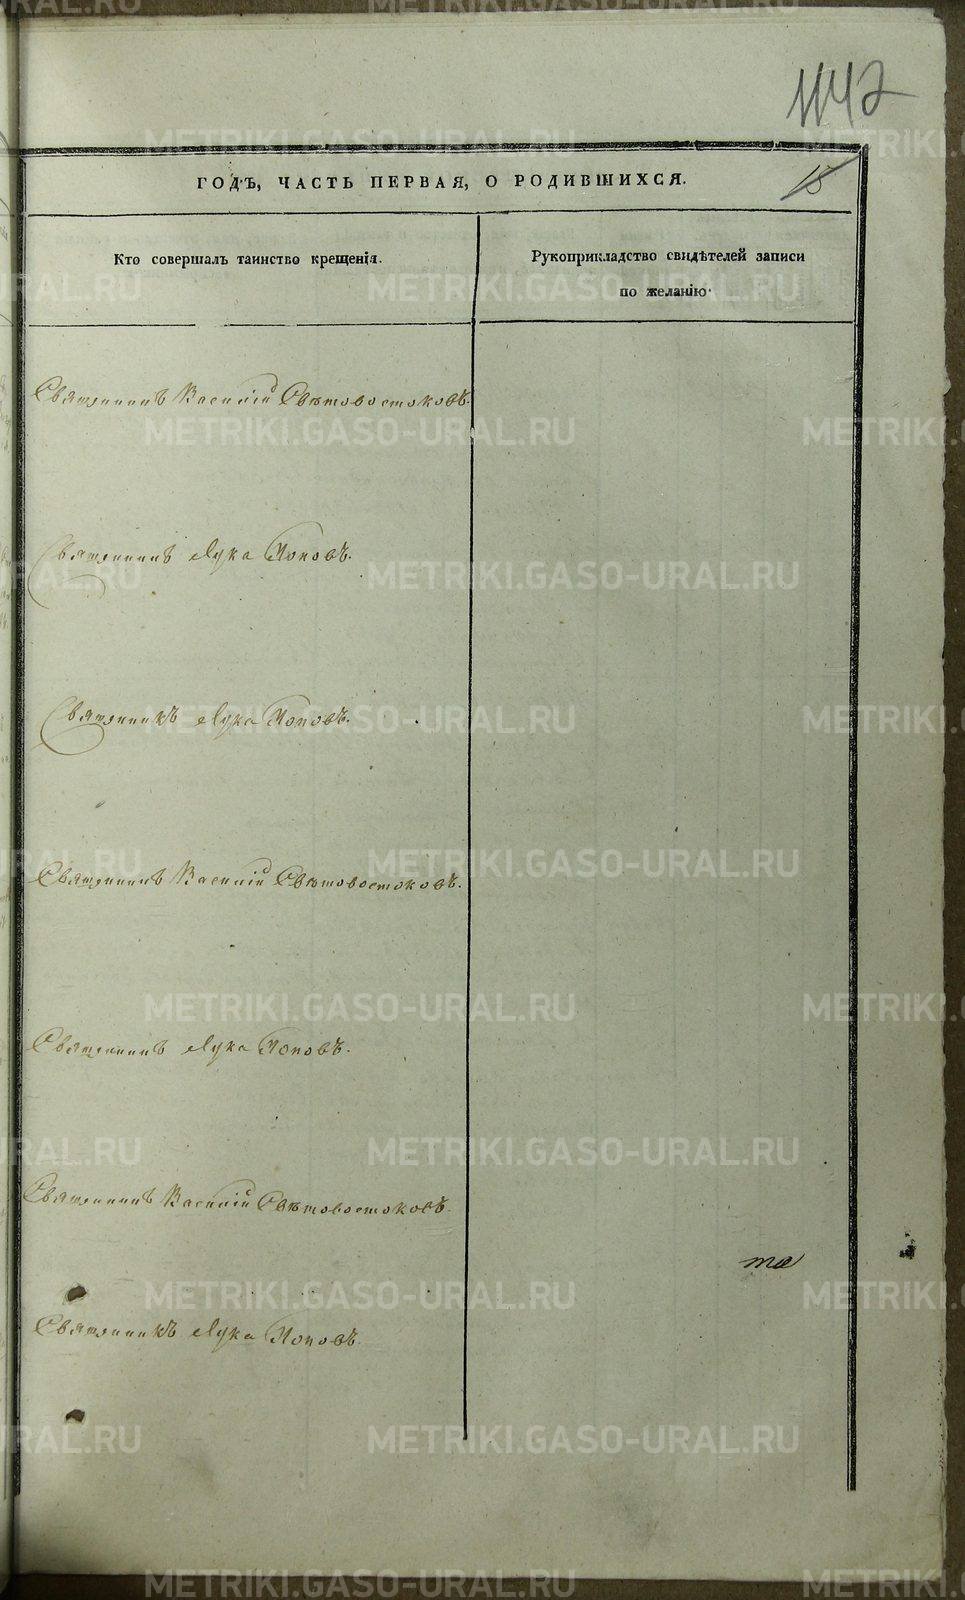 1142
ГОДЪ, ЧАСТЬ ПЕРВАЯ, О РОДИВШИХСЯ.
18
Кто совершалъ таинство крещенія.
Рукоприкладство свидѣтелей записи
по желанію.
Священникъ Василій Свѣтовостоковъ.
Священникъ Лука Поповъ.
Священникъ Лука Поповъ.
Священникъ Василій Свѣтовостоковъ.
Священникъ Лука Поповъ.
Священникъ Василій Свѣтовостоковъ.
Священникъ Лука Поповъ.
METRIKI.GASO-URAL.RU